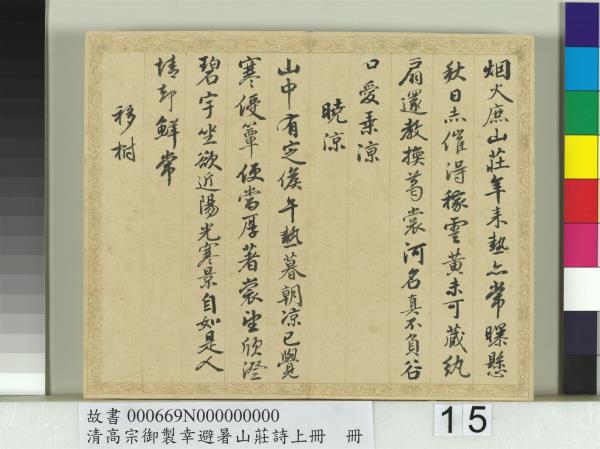 烟火庶山莊年来熱亦常曝懸
秋日赤催得稼雲黄未可藏紈
扇還教換葛裳河名真不負谷
口愛乘涼
曉涼
山中有定候午熱暮朝涼已覺
寒侵簟便當厚著裳望欣澄
碧宇坐欲近陽光寒暑自如是人
情却鮮常
移樹
故書 000669N000000000
清高宗御製幸避暑山莊詩上冊 冊
15